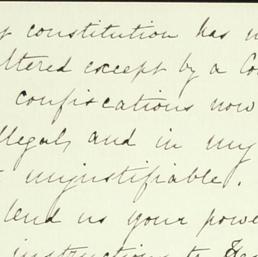 constitution has
altered except by a Co
confiscations now
illegal, and in my
unjustifiable.
lend us your powe
instructions to